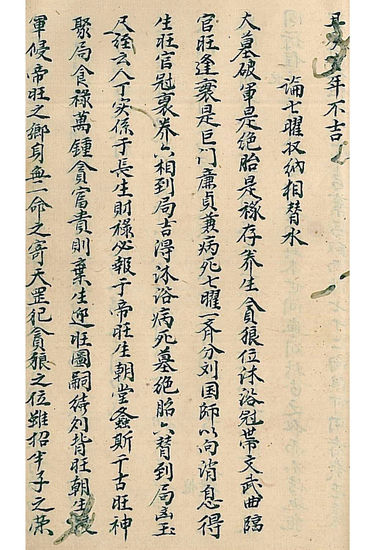 年不吉
論七曜收納相替水
大墓破軍是絶胎是祿存养生貪狼位沐浴冠帶文武曲臨
官旺逢衰是巨门廉貞兼病死七曜一齐分刘国師以向消息得
生旺官冠衰养六相到局吉得沐浴病死墓絶胎六替到局凶玉
尺經云人丁实係于長生財祿必報于帝旺生朝堂螽斯丁古旺神
聚局食祿萬鍾貪富貴則棄生迎旺圖嗣續則背旺朝生
軍侵帝旺之鄉身無二命之寄天罡犯貪狼之位雖招半子之荣